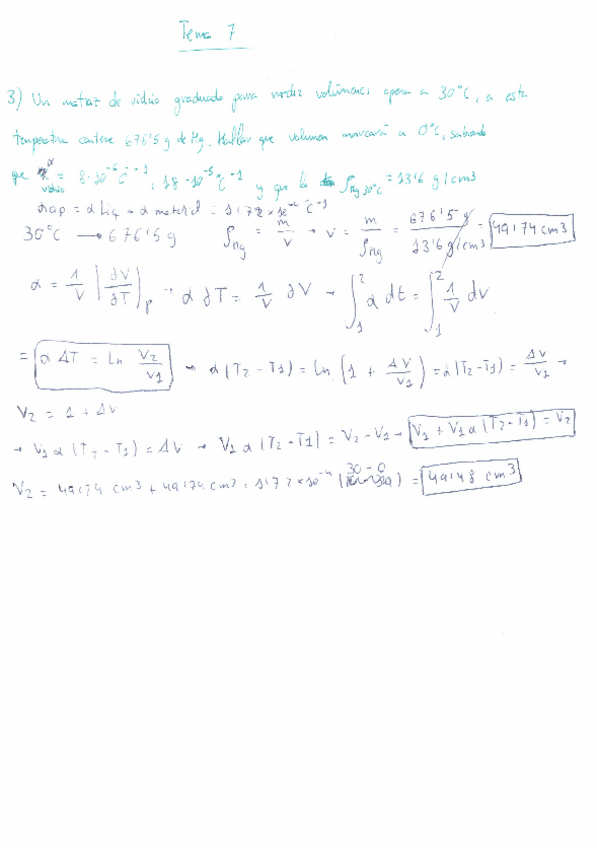 Tema 7
3) Un matraz de vidrio graduado para medir volúmenes opera a 30°C, a esta
temperatura contiene 676'5 g de Hg. Hallar que volumen marcará a 0°C, sabiendo
que α vidrio = 8·10⁻⁶ °C⁻¹; 18·10⁻⁵ °C⁻¹ y que la ρHg 30°C = 13'6 g/cm3
αap = α Liq - α material = 1'72 × 10⁻⁴ °C⁻¹
30°C → 676'5 g ρHg = m/V → V = m/ρHg = 676'5 g / 13'6 g/cm3 = 49'74 cm3
α = 1/V |∂V/∂T|p → α ∂T = 1/V ∂V → ∫₁² α dt = ∫₁² 1/V dv
= α ΔT = ln V2/V1 → α(T2 - T1) = ln (1 + ΔV/V1) = α(T2 - T1) = ΔV/V1 →
V2 = 1 + ΔV
→ V1 α (T2 - T1) = ΔV → V1 α (T2 - T1) = V2 - V1 → V1 + V1 α (T2 - T1) = V2
V2 = 49'74 cm3 + 49'74 cm3 · 1'72 × 10⁻⁴ (30 - 0) = 49'48 cm3